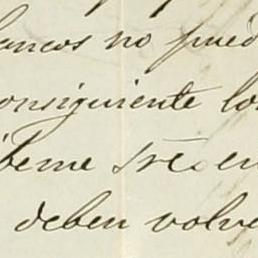 ancos no pued
onsiguiente lo
beme tres en
deben volve